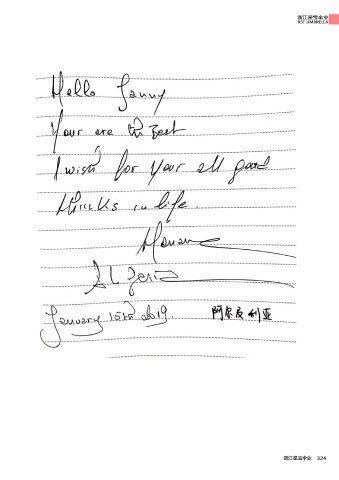 浙江星宝伞业
RST UMBRELLA
Hello Janny
Your are the Best
I wish for your all good
thinks in life.
Algeria
January 15th 2019.
阿尔及利亚
浙江星宝伞业 324